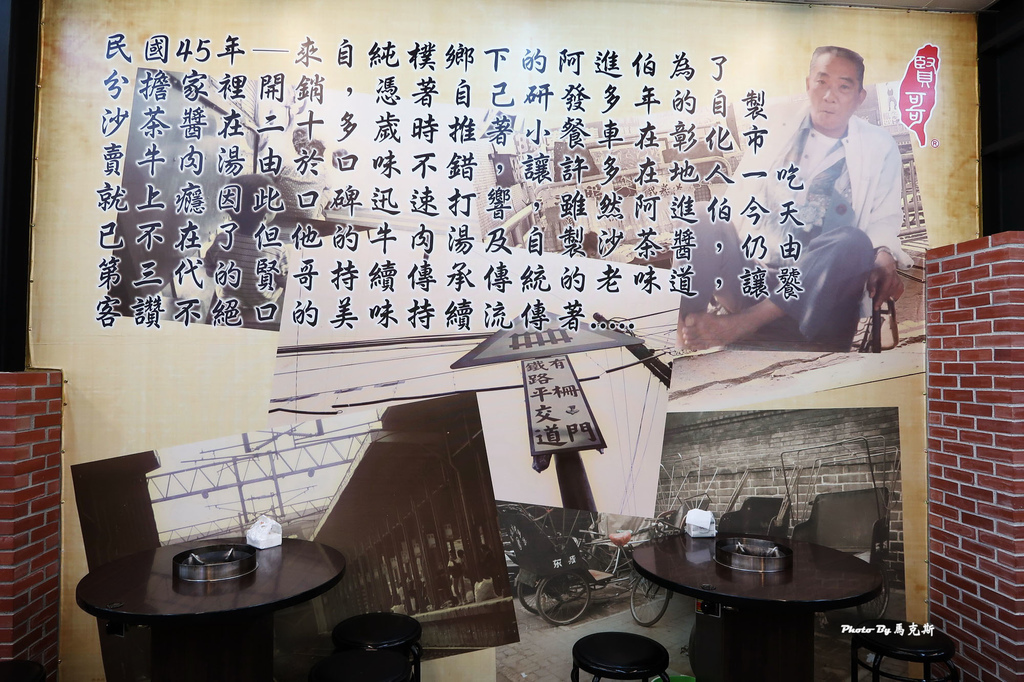 民國45年—來自純樸鄉下的阿進伯為了
分擔家裡開銷,憑著自己研發多年的自製
沙茶醬在二十多歲時推著小餐車在彰化市
賣牛肉湯由於口味不錯,讓許多在地人一吃
就上癮因此口碑迅速打響,雖然阿進伯,今天
已不在了但他的牛肉湯及自製沙茶醬,仍由
第三代的賢哥持續傳承傳統的老味道,讓饕
客讚不絕口的美味持續流傳著.....
賢哥®
有柵門
鐵路平交道
Photo By 馬克斯